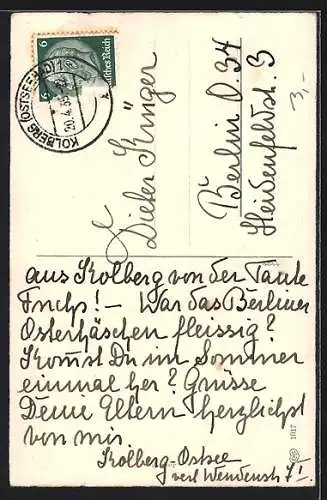 6 6
Deutsches Reich
KOLBERG (OSTSEEBAD) 1
20.4.3
Dieter Krüger
Berlin O. 34
Heidenfeldstr. 3
3,-
aus Kolberg von der Tante
Fuchs! – War das Berliner
Osterhäschen fleissig?
Kommst Du im Sommer
einmal her? Grüsse
Deine Eltern herzlichst
von mir
Kolberg-Ostsee
verl Wendenstr 7!
1017